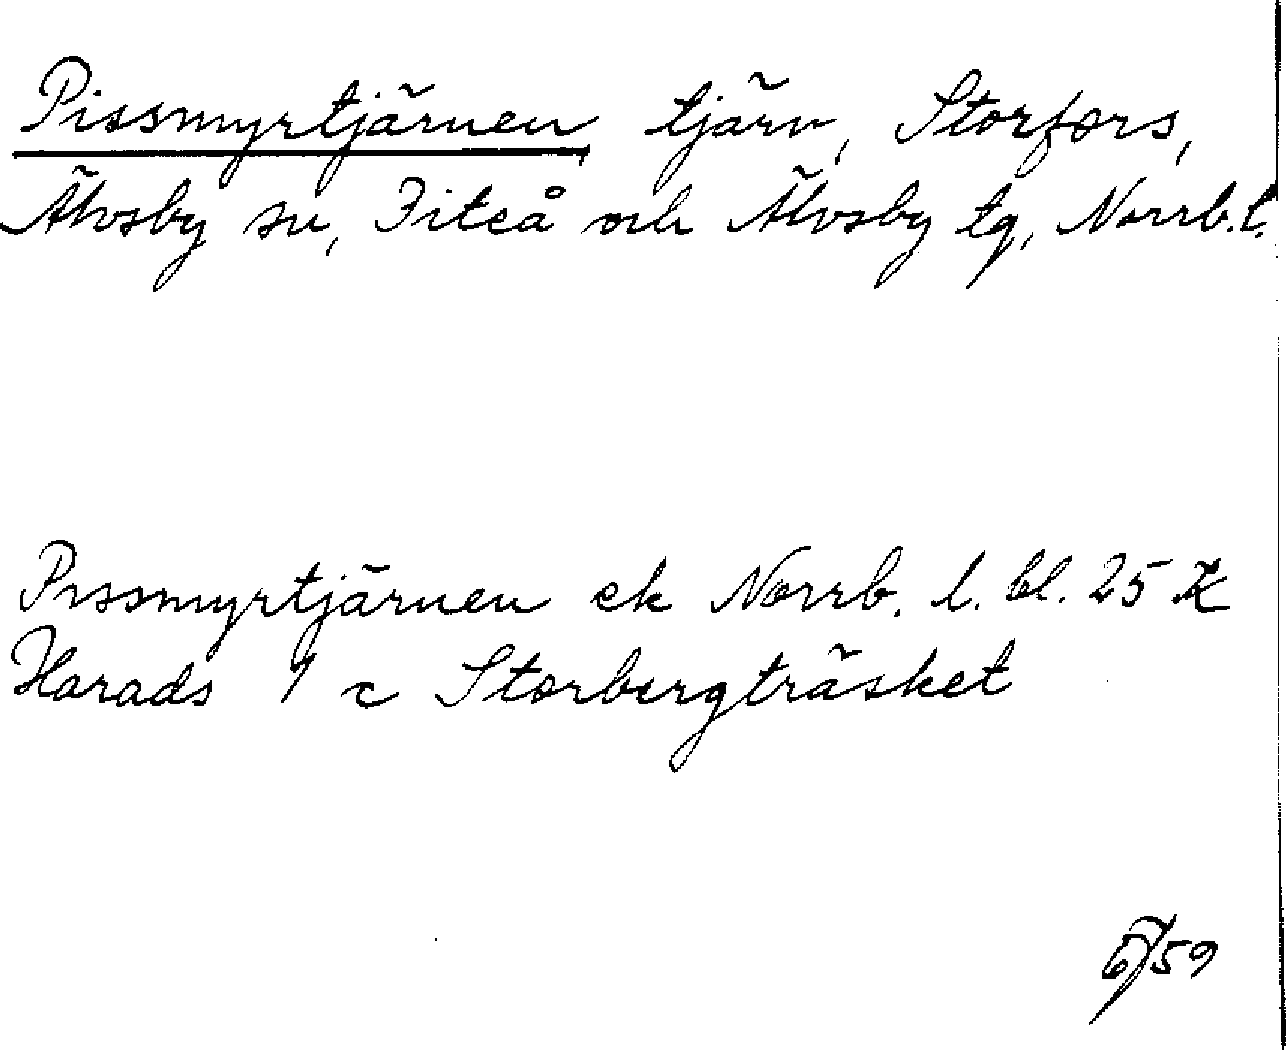 Pissmyrtjärnen tjärn, Storfors,
Älvsby sn, Piteå och Älvsby tg, Norrb.l.
Pissmyrtjärnen ek Norrb. l. bl. 25 K
Harads 1 c Storbergträsket
6/59